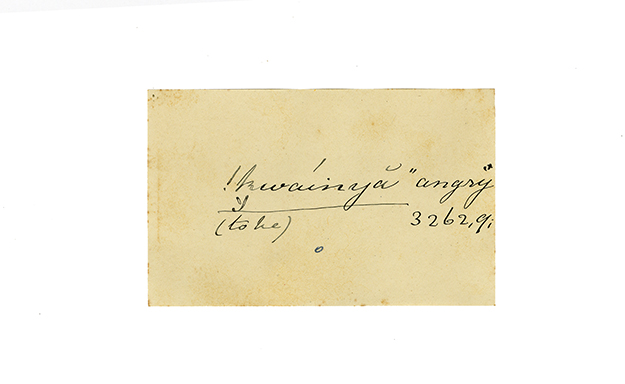 !kwáinyă "angry"
(to be) 3262,9;